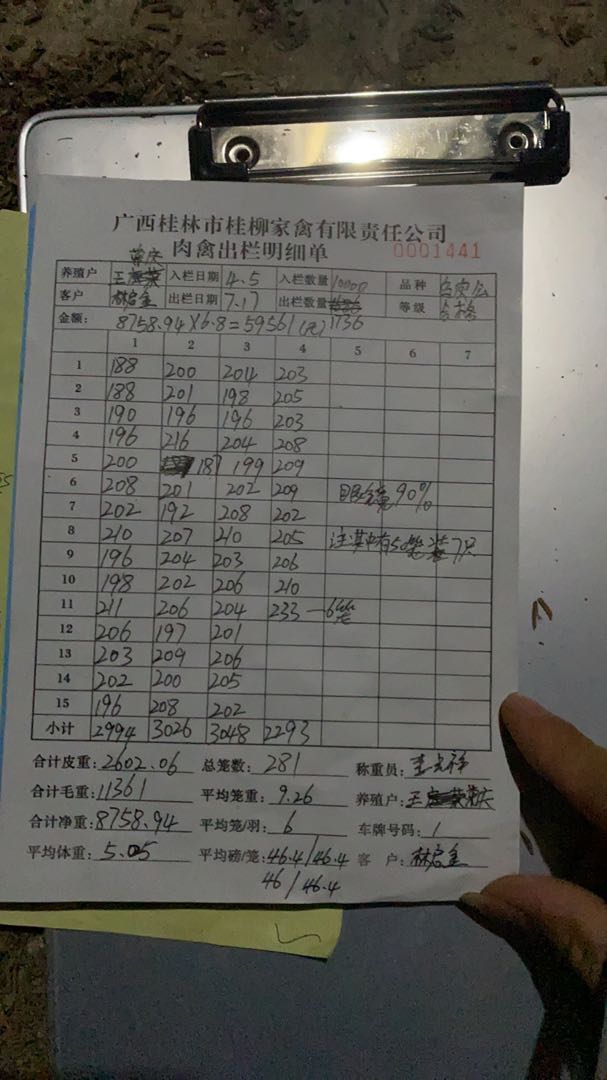 广西桂林市桂柳家禽有限责任公司
肉禽出栏明细单 0001441
养殖户 王 常庆 入栏日期 4.5 入栏数量 10000 品种
客户 林启金 出栏日期 7.17 出栏数量 1736 等级 合格
金额: 8758.94×6.8=59561(元)
1 2 3 4 5 6 7
1 188 200 204 203
2 188 201 198 205
3 190 196 196 203
4 196 216 204 208
5 200 187 199 209
6 208 201 202 209 眼镜90%
7 202 192 208 202
8 210 207 210 205 注:其中有50笼装7只
9 196 204 203 206
10 198 202 206 210
11 211 206 204 233 一6笼
12 206 197 201
13 203 209 206
14 202 200 205
15 196 208 202
小计 2994 3026 3048 2293
合计皮重: 2602.06 总笼数: 281 称重员:
合计毛重: 11361 平均笼重: 9.26 养殖户: 王 常庆
合计净重: 8758.94 平均笼/羽: 6 车牌号码: /
平均体重: 5.05 平均磅/笼: 46.4/46.4 客 户: 林启金
46/46.4